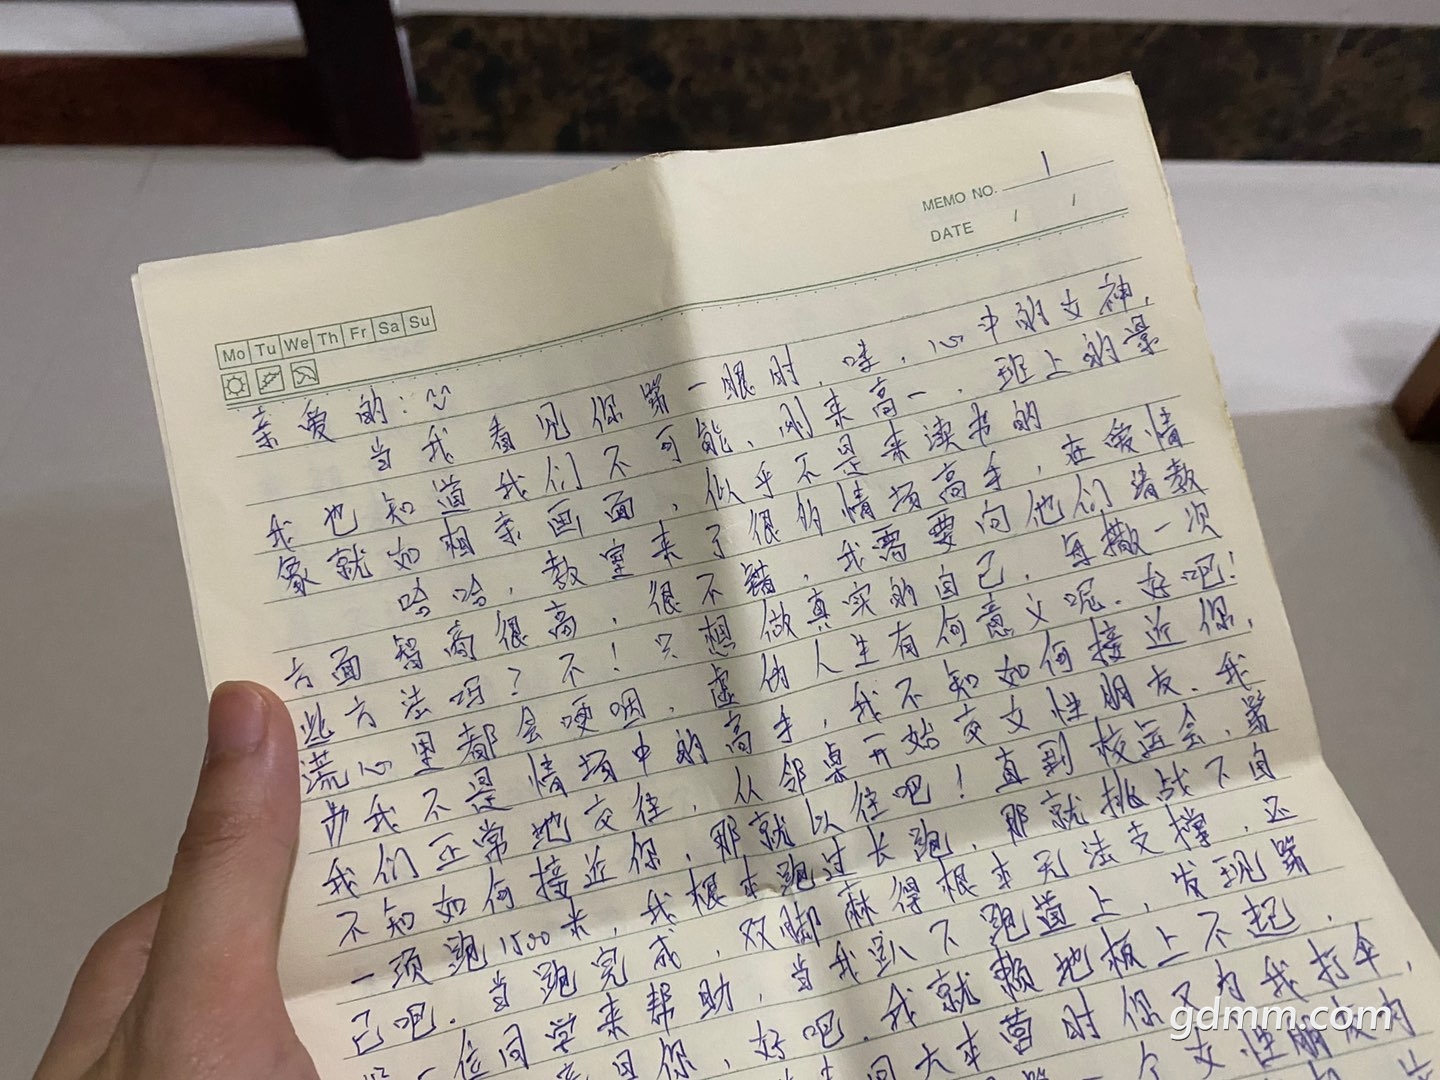 MEMO NO. 1
DATE / /
Mo Tu We Th Fr Sa Su
亲爱的:
当我看见你第一眼时,哇,心中的女神,
我也知道我们不可能、刚来高一,班上的景
象就如相亲画面,似乎不是来读书的
哈哈,教室来了很多情场高手,在爱情
方面智商很高,很不错,我需要向他们请教
些方法吗?不!只想做真实的自己,每撒一次
谎心里都会哽咽,虚伪人生有何意义呢.好吧!
我不是情场中的高手,我不知如何接近你,
我们正常地交往,从邻桌开始交女性朋友.我
不知如何接近你,那就以往吧!直到校运会,第
一项跑1500米,我根本跑过长跑,那就挑战下自
己吧.当跑完成,双脚麻得根本无法支撑,还
一位同学来帮助,当我趴下跑道上,发现第
是你,好吧.我就赖地板上不起,
回大本营时你又为我打伞,
一个女性朋友的
gdmm.com